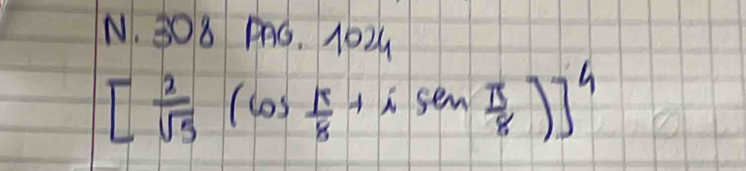 N. 308 PAG. 1024
[ 2/√5 (cos π/8 + i sen π/8 ) ]⁴